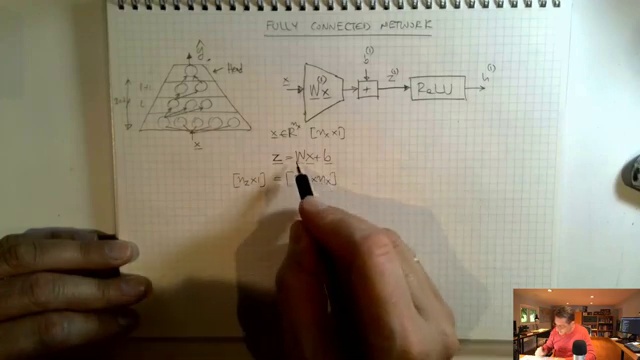 FULLY CONNECTED NETWORK
ŷ
Head
L+1
L
x
x
W^(1) x
b^(1)
+
z^(1)
ReLU
h^(1)
x ∈ R^{n_x} [n_x × 1]
z = Wx + b
[n_z × 1] = [ × n_x]